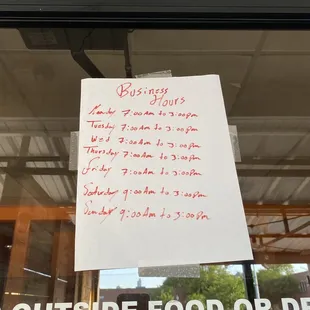 Business
Hours
Monday 7:00Am to 3:00pm
Tuesday 7:00Am to 3:00pm
Wed 7:00Am to 3:00pm
Thursday 7:00Am to 3:00pm
Friday 7:00Am to 3:00pm
Saturday 9:00Am to 3:00pm
Sunday 9:00Am to 3:00pm
OUTSIDE FOOD OR